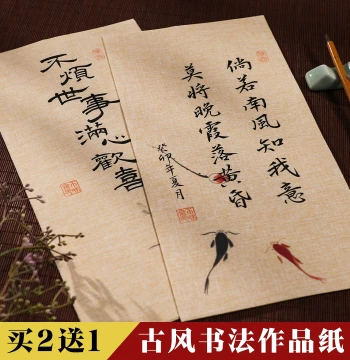 倘若南風知我意
莫將晚霞落黃昏
癸卯年夏月
不煩世事滿心歡喜
买2送1
古风书法作品纸